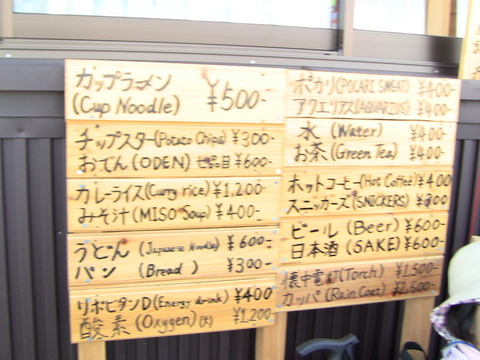 カップラーメン
(Cup Noodle) ¥500-
チップスター(Potato Chips) ¥300-
おでん(ODEN) ¥600-
カレーライス(Curry rice) ¥1,200-
みそ汁(MISO Soup) ¥400-
うどん(Japanese Noodle) ¥600-
パン(Bread) ¥300-
リポビタンD(Energy drink) ¥400
酸素(Oxygen)(大) ¥1,200-
ポカリ(POCARI SWEAT) ¥400-
アクエリアス(AQUARIUS) ¥400-
水(Water) ¥400-
お茶(Green Tea) ¥400-
ホットコーヒー(Hot Coffee) ¥400
スニッカーズ(SNICKERS) ¥300
ビール(Beer) ¥600-
日本酒(SAKE) ¥600-
懐中電灯(Torch) ¥1,500-
カッパ(Rain Coat) ¥2,500-